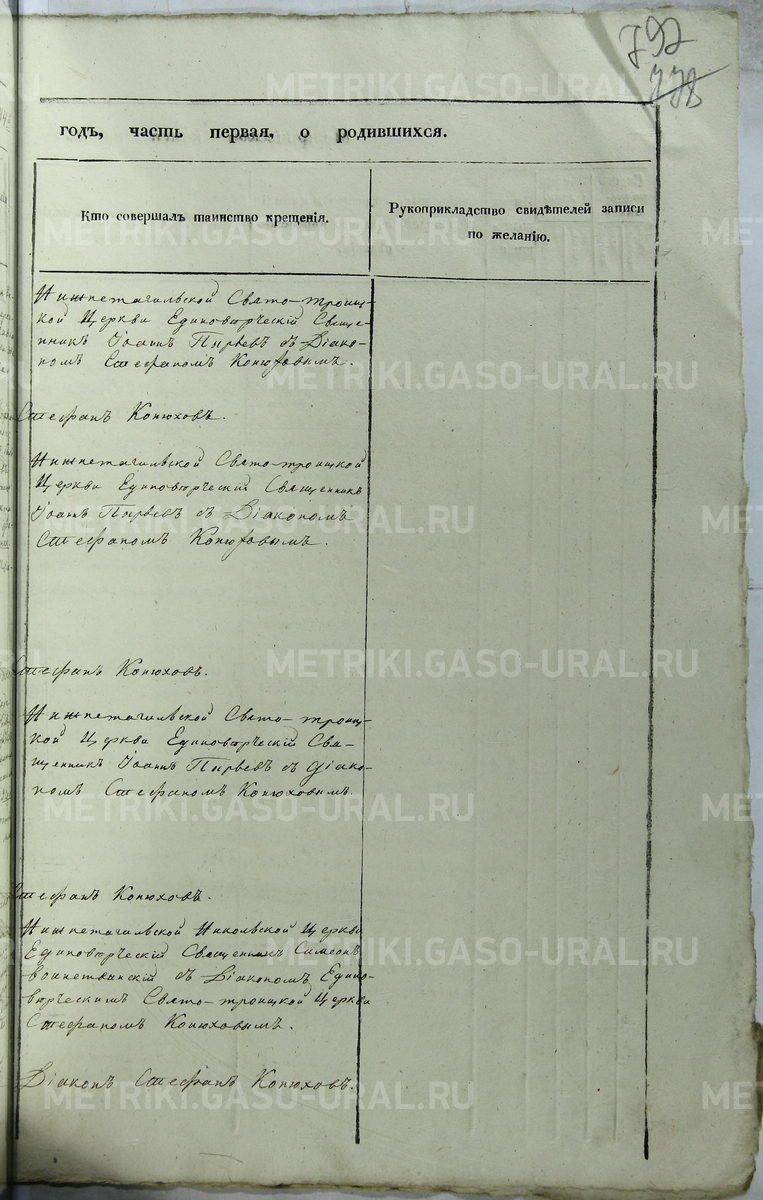 792
778
годъ, часть первая, о родившихся.
Кто совершалъ таинство крещенія.
Рукоприкладство свидѣтелей записи
по желанію.
Нижнетагильской Свято-троиц-
кой Церкви Единовѣрческій Свяще-
нникъ Іоаннъ Пырьевъ съ Діако-
номъ Стефаномъ Конюховымъ.
Стефанъ Конюховъ.
Нижнетагильской Свято-троицкой
Церкви Единовѣрческій Священникъ
Іоаннъ Пырьевъ съ Діакономъ
Стефаномъ Конюховымъ.
Стефанъ Конюховъ.
Нижнетагильской Свято-троиц-
кой Церкви Единовѣрческій Свя-
щенникъ Іоаннъ Пырьевъ съ діако-
номъ Стефаномъ Конюховымъ.
Стефанъ Конюховъ.
Нижнетагильской Никольской Церкви
Единовѣрческій Священникъ Симеонъ
съ Діакономъ Едино-
вѣрческимъ Свято-троицкой Церкви
Стефаномъ Конюховымъ.
Діаконъ Стефанъ Конюховъ.
METRIKI.GASO-URAL.RU